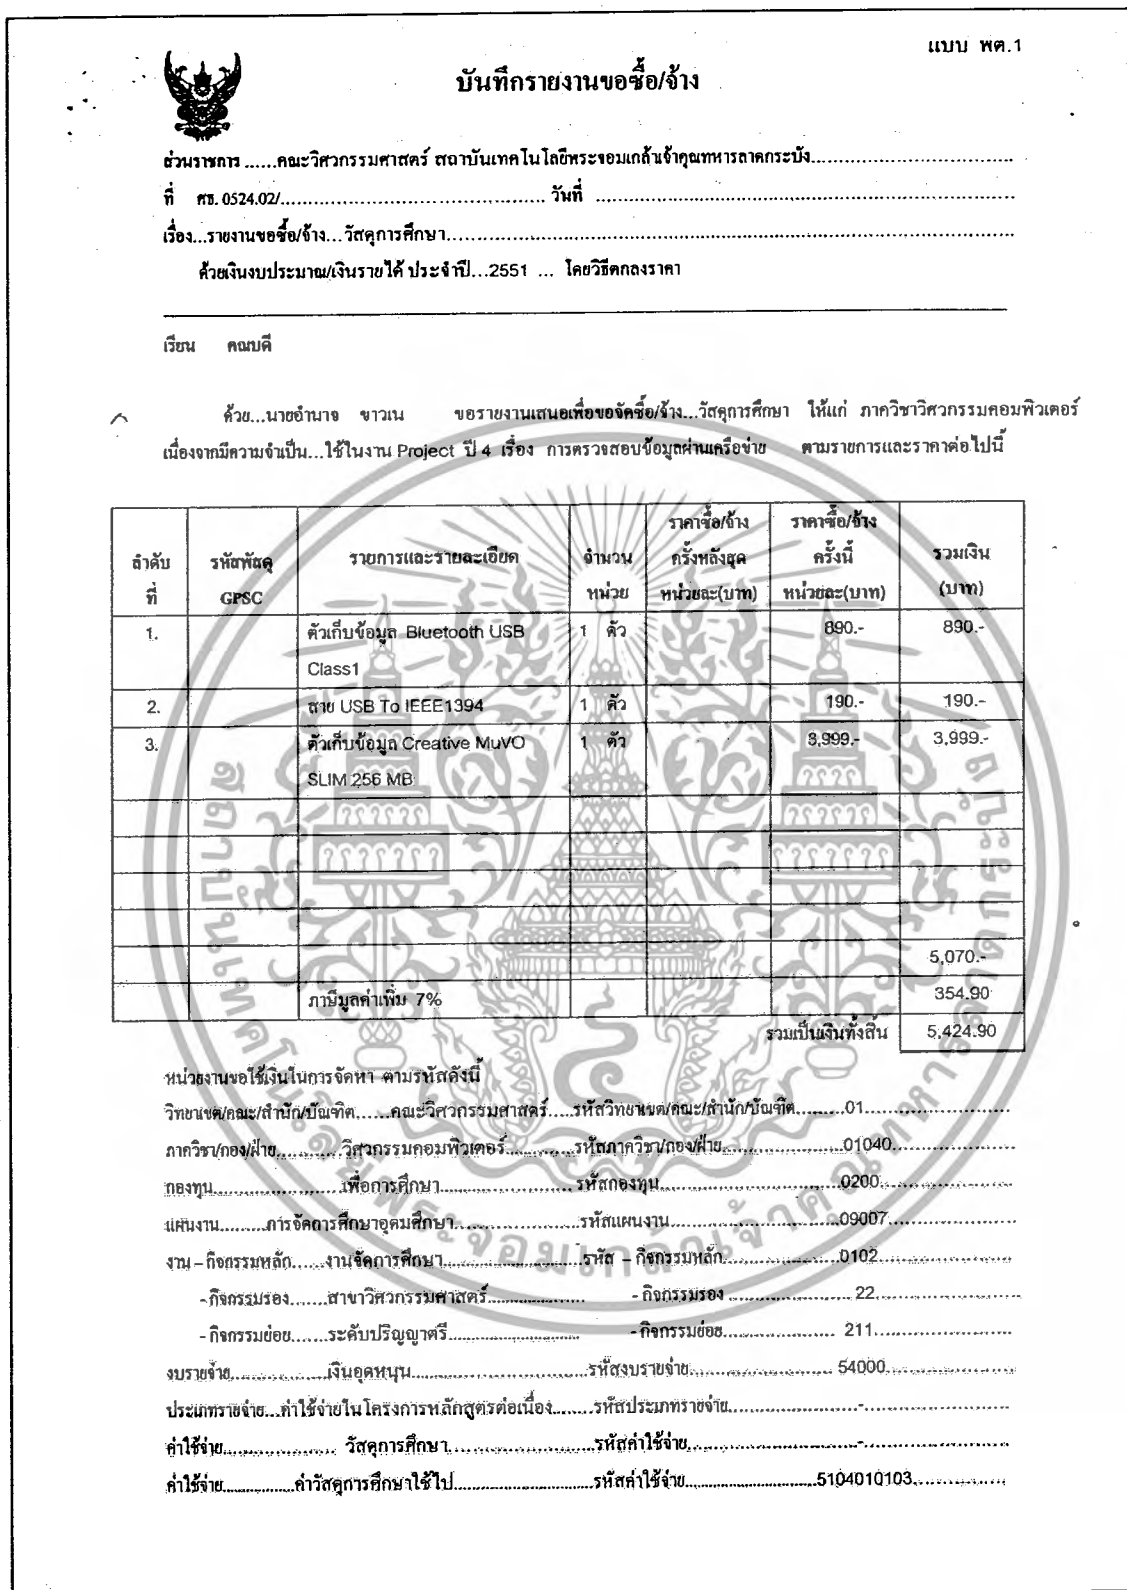 แบบ พต.1
บันทึกรายงานขอซื้อ/จ้าง
ส่วนราชการ ......คณะวิศวกรรมศาสตร์ สถาบันเทคโนโลยีพระจอมเกล้าเจ้าคุณทหารลาดกระบัง..................................
ที่ ศธ. 0524.02/............................................ วันที่ ......................................................................
เรื่อง...รายงานขอซื้อ/จ้าง...วัสดุการศึกษา..........................................................................................
ด้วยเงินงบประมาณ/เงินรายได้ ประจำปี...2551 ... โดยวิธีตกลงราคา
เรียน คณบดี
ด้วย...นายอำนาจ ขาวเน ขอรายงานเสนอเพื่อขอจัดซื้อ/จ้าง...วัสดุการศึกษา ให้แก่ ภาควิชาวิศวกรรมคอมพิวเตอร์
เนื่องจากมีความจำเป็น...ใช้ในงาน Project ปี 4 เรื่อง การตรวจสอบข้อมูลผ่านเครือข่าย ตามรายการและราคาต่อไปนี้
ลำดับที่ รหัสพัสดุ GPSC รายการและรายละเอียด จำนวนหน่วย ราคาซื้อ/จ้าง ครั้งหลังสุด หน่วยละ(บาท) ราคาซื้อ/จ้าง ครั้งนี้ หน่วยละ(บาท) รวมเงิน (บาท)
1. ตัวเก็บข้อมูล Bluetooth USB 1 ตัว 890.- 890.-
Class1
2. สาย USB To IEEE1394 1 ตัว 190.- 190.-
3. ตัวเก็บข้อมูล Creative MuVO 1 ตัว 3,999.- 3,999.-
SLIM 256 MB
5,070.-
ภาษีมูลค่าเพิ่ม 7% 354.90
รวมเป็นเงินทั้งสิ้น 5,424.90
หน่วยงานขอใช้เงินในการจัดหา ตามรหัสดังนี้
วิทยาเขต/คณะ/สำนัก/บัณฑิต......คณะวิศวกรรมศาสตร์.....รหัสวิทยาเขต/คณะ/สำนัก/บัณฑิต.........01........................
ภาควิชา/กอง/ฝ่าย............วิศวกรรมคอมพิวเตอร์............รหัสภาควิชา/กอง/ฝ่าย......................01040....................
กองทุน......................เพื่อการศึกษา......................รหัสกองทุน..............................0200......................
แผนงาน.........การจัดการศึกษาอุดมศึกษา....................รหัสแผนงาน............................09007.....................
งาน – กิจกรรมหลัก.......งานจัดการศึกษา........................รหัส – กิจกรรมหลัก....................0102........................
- กิจกรรมรอง.......สาขาวิศวกรรมศาสตร์................. - กิจกรรมรอง ..................... 22........................
- กิจกรรมย่อย.......ระดับปริญญาตรี....................... - กิจกรรมย่อย................... 211.......................
งบรายจ่าย.................เงินอุดหนุน..............................รหัสงบรายจ่าย........................ 54000.....................
ประเภทรายจ่าย...ค่าใช้จ่ายในโครงการหลักสูตรต่อเนื่อง........รหัสประเภทรายจ่าย......................-........................
ค่าใช้จ่าย................... วัสดุการศึกษา.........................รหัสค่าใช้จ่าย.............................-.........................
ค่าใช้จ่าย...............ค่าวัสดุการศึกษาใช้ไป........................รหัสค่าใช้จ่าย.......................5104010103................
สถาบันเทคโนโลยีพระจอมเกล้าเจ้าคุณทหารลาดกระบัง